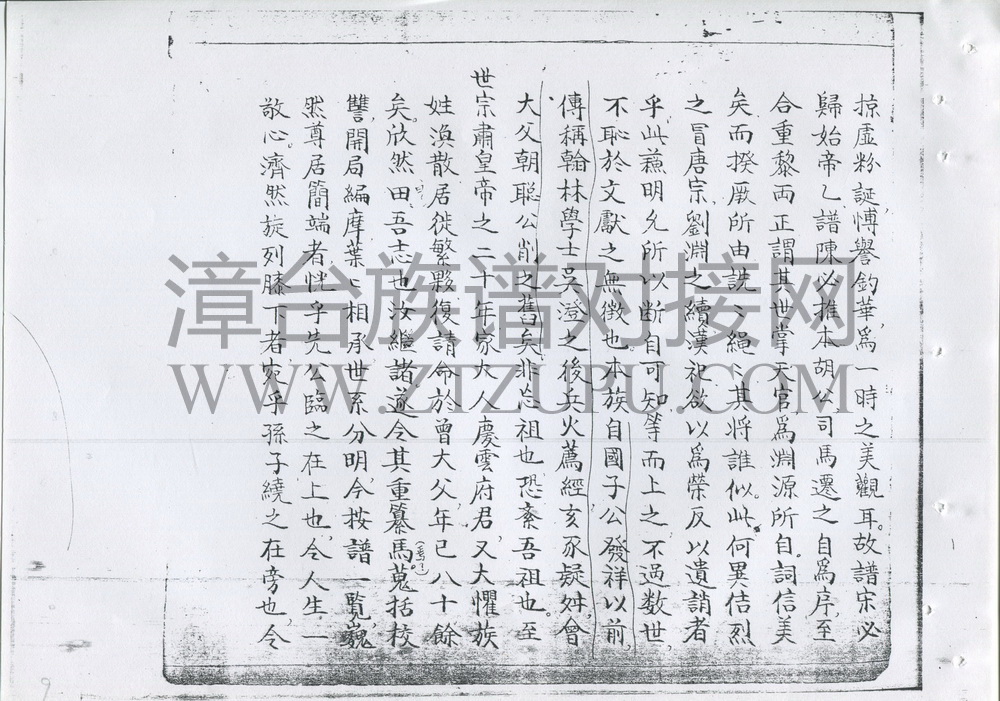 掠虛粉誕愽譽釣華，爲一時之美觀耳。故譜宋必
歸始帝乙，譜陳必推本胡公，司馬遷之自爲序，至
合重黎両正謂其世掌天官，爲淵源所自，詞信美
矣，而揆厥所由，詵〻繩〻，其將誰似。此何異佶烈
之冒唐宗，劉淵之續漢祀，欲以爲榮，反以遺誚者
乎，此蕉明允所以断自可知等而上之不過数世，
不恥於文獻之無徴也。本族自國子公發祥以前，
傳稱翰林學士吳澄之後，兵火薦經，亥豕疑舛，曾
大父朝聡公削之舊矣，非忘祖也，恐紊吾祖也。至
世宗肅皇帝之二十年，家大人慶雲府君，又大懼族
姓渙散，居徙繁夥，復請命於曾大父，年已八十餘
矣。欣然曰，吾志也，汝繼諸，遂令其重纂馬蒐括校
讐，開局編摩，葉〻相承，世系分明，今按譜一覧巍
然尊居簡端者，恍乎先公臨之在上也，令人生一
敬心。濟然旋列膝下者，宛乎孫子繞之在旁也，令
漳台族谱对接网
WWW.ZTZUPU.COM
9